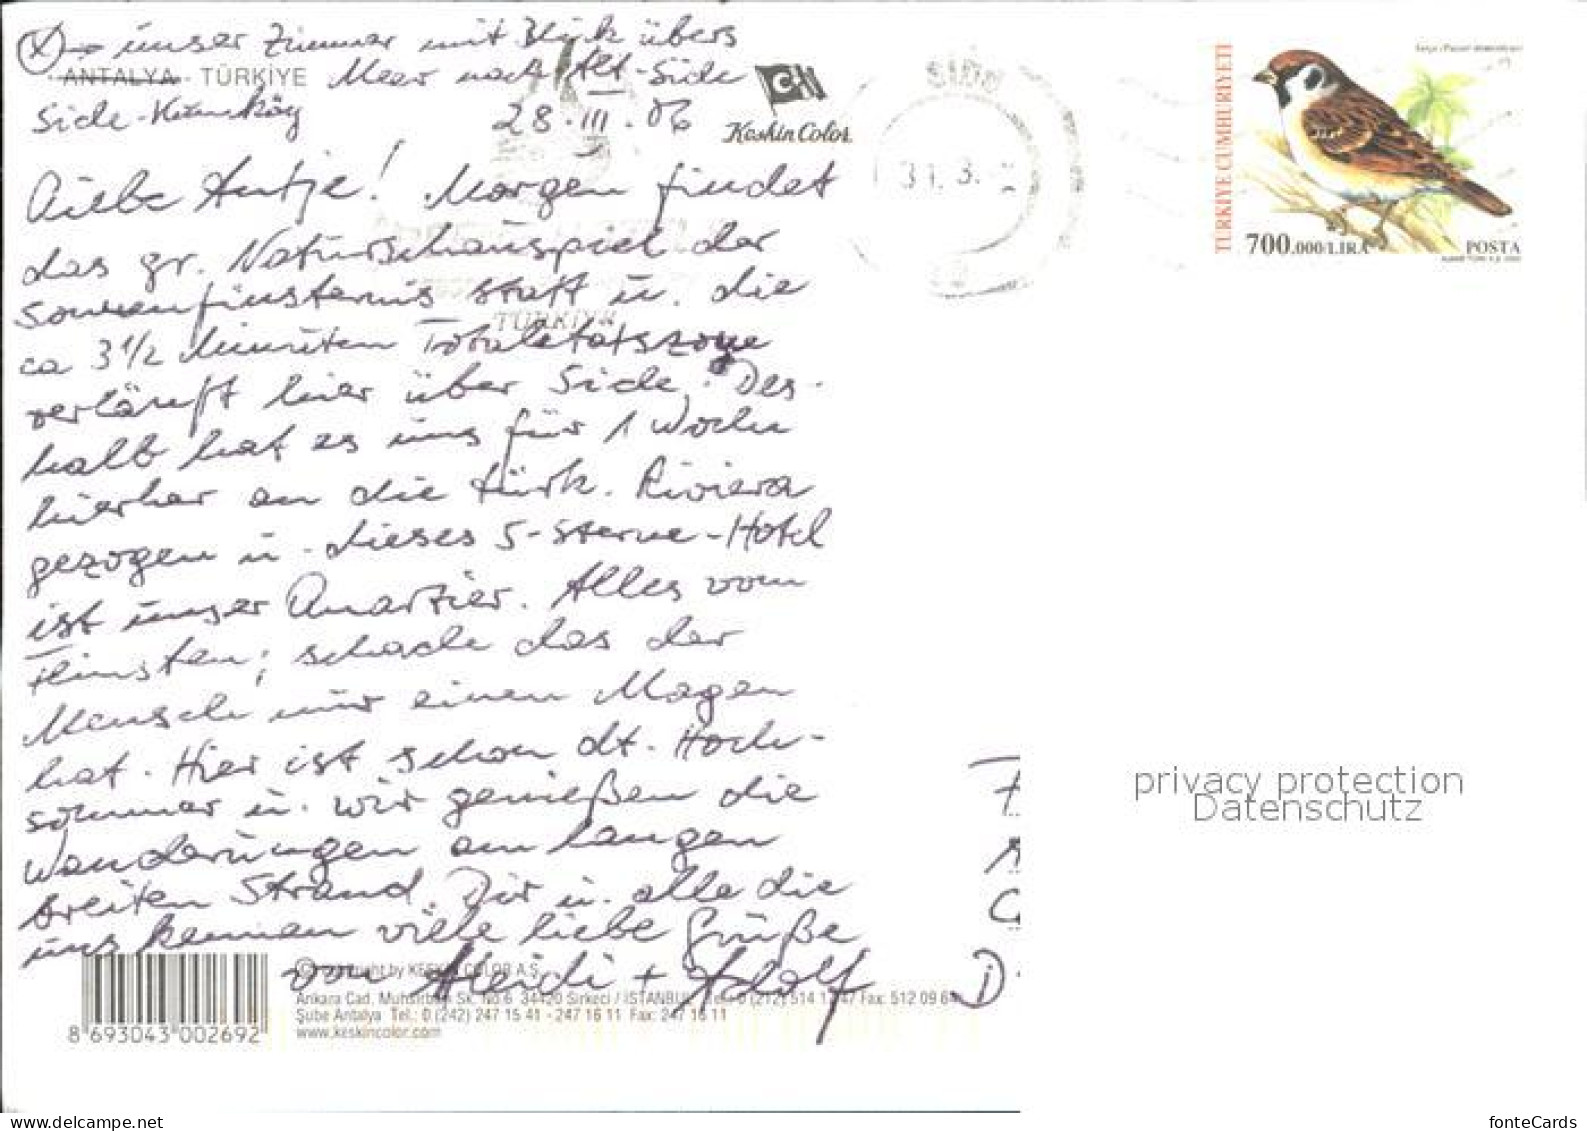 (X) → unser Zimmer mit Blick übers
ANTALYA - TÜRKİYE Meer nach Alt-Side
Side-Kumköy 28.III.06
Keskin Color
SİDE
31.3.
TÜRKİYE CUMHURİYETİ
700.000 LIRA
POSTA
Liebe Antje! Morgen findet
das gr. Naturschauspiel der
Sonnenfinsternis statt u. die
ca 3 1/2 Minuten Totalitätszone
verläuft hier über Side. Des-
halb hat es uns für 1 Woche
hierher an die türk. Riviera
gezogen u. dieses 5-Sterne-Hotel
ist unser Quartier. Alles vom
Feinsten; schade das der
Mensch nur einen Magen
hat. Hier ist schon dt. Hoch-
sommer u. wir genießen die
Wanderungen am langen
breiten Strand. Dir u. alle die
uns kennen viele liebe Grüße
von Heidi + Adolf
TÜRKİYE
© Copyright by KESKİN COLOR A.Ş.
Ankara Cad. Muhsirbaşı Sk. No.6 34420 Sirkeci / İSTANBUL Tel.: 0 (212) 514 17 47 Fax: 512 09 64
Şube Antalya Tel.: 0 (242) 247 15 41 - 247 16 11 Fax: 247 16 11
www.keskincolor.com
8 693043 002692
D
privacy protection
Datenschutz
https://www.delcampe.net
fonteCards